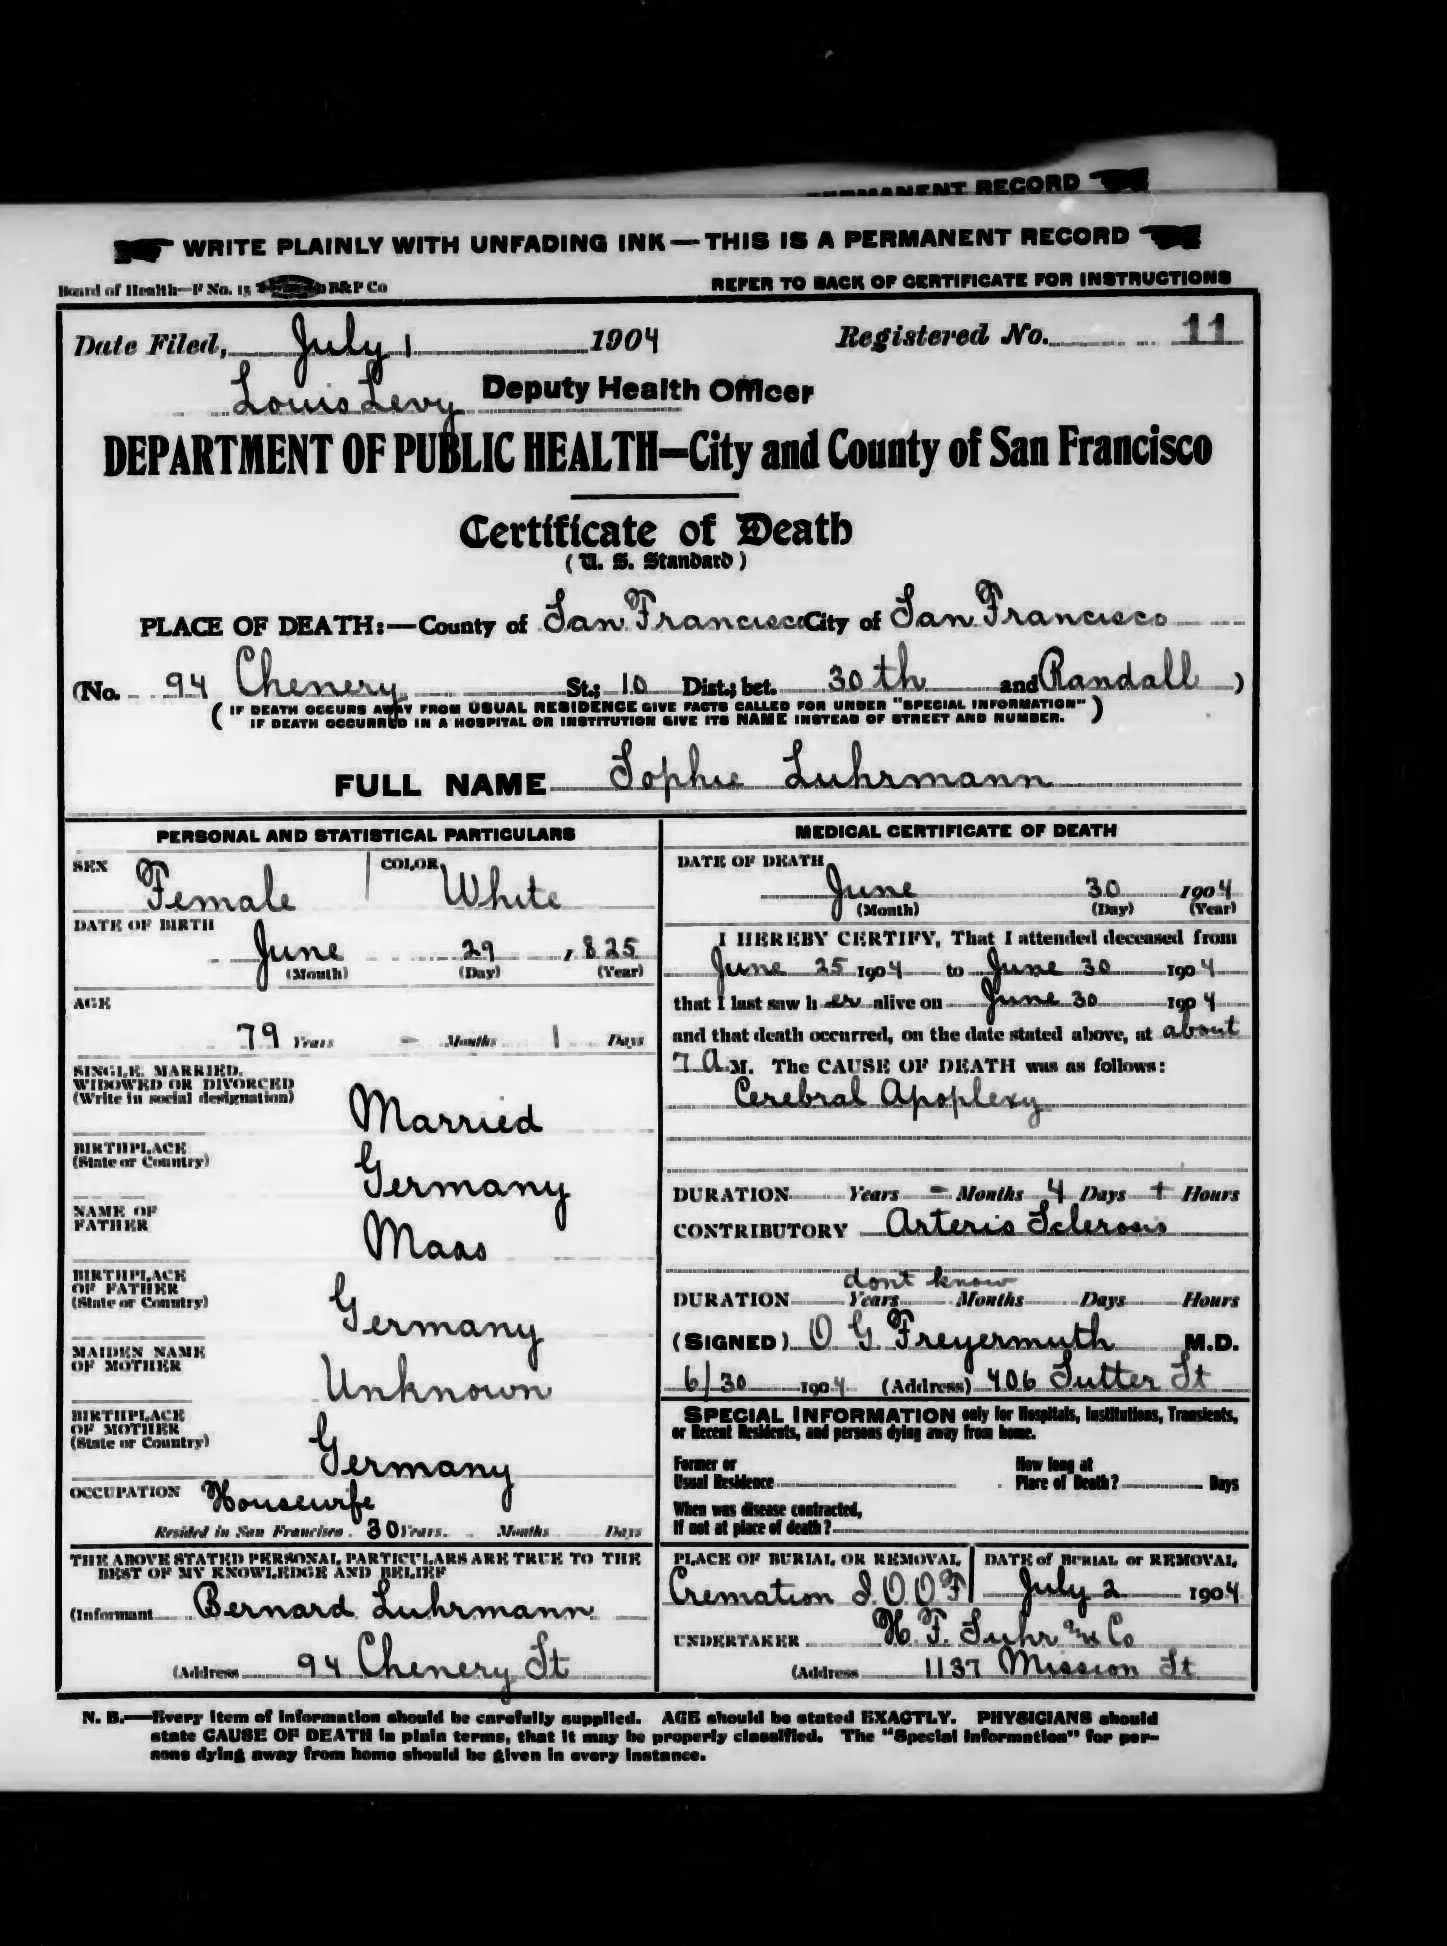 PERMANENT RECORD
WRITE PLAINLY WITH UNFADING INK—THIS IS A PERMANENT RECORD
Board of Health—F No. 15 B&P Co REFER TO BACK OF CERTIFICATE FOR INSTRUCTIONS
Date Filed, July 1 1904 Registered No. 11
Louis Levy Deputy Health Officer
DEPARTMENT OF PUBLIC HEALTH—City and County of San Francisco
Certificate of Death
(U. S. Standard)
PLACE OF DEATH:—County of San Francisco City of San Francisco
(No. 94 Chenery St.; 10 Dist.; bet. 30th and Randall )
( IF DEATH OCCURS AWAY FROM USUAL RESIDENCE GIVE FACTS CALLED FOR UNDER "SPECIAL INFORMATION" )
IF DEATH OCCURRED IN A HOSPITAL OR INSTITUTION GIVE ITS NAME INSTEAD OF STREET AND NUMBER.
FULL NAME Sophie Luhrmann
PERSONAL AND STATISTICAL PARTICULARS
SEX Female COLOR White
DATE OF BIRTH
June 29 , 825
(Month) (Day) (Year)
AGE
79 Years - Months 1 Days
SINGLE, MARRIED,
WIDOWED OR DIVORCED
(Write in social designation)
Married
BIRTHPLACE
(State or Country)
Germany
NAME OF
FATHER
Maas
BIRTHPLACE
OF FATHER
(State or Country)
Germany
MAIDEN NAME
OF MOTHER
Unknown
BIRTHPLACE
OF MOTHER
(State or Country)
Germany
OCCUPATION Housewife
Resided in San Francisco 30 Years. Months Days
THE ABOVE STATED PERSONAL PARTICULARS ARE TRUE TO THE
BEST OF MY KNOWLEDGE AND BELIEF
(Informant Bernard Luhrmann
(Address 94 Chenery St
MEDICAL CERTIFICATE OF DEATH
DATE OF DEATH
June 30 1904
(Month) (Day) (Year)
I HEREBY CERTIFY, That I attended deceased from
June 25 1904 to June 30 1904
that I last saw her alive on June 30 1904
and that death occurred, on the date stated above, at about
7 A.M. The CAUSE OF DEATH was as follows:
Cerebral Apoplexy
DURATION Years - Months 4 Days + Hours
CONTRIBUTORY Arterio Sclerosis
dont know
DURATION Years Months Days Hours
(SIGNED) O G Freyermuth M.D.
6/30 1904 (Address) 406 Sutter St
SPECIAL INFORMATION only for Hospitals, Institutions, Transients,
or Recent Residents, and persons dying away from home.
Former or
Usual Residence
How long at
Place of Death? Days
When was disease contracted,
If not at place of death?
PLACE OF BURIAL OR REMOVAL
Cremation I O O F
DATE of BURIAL or REMOVAL
July 2 1904
UNDERTAKER H. F. Suhr and Co
(Address 1137 Mission St
N. B.—Every item of information should be carefully supplied. AGE should be stated EXACTLY. PHYSICIANS should
state CAUSE OF DEATH in plain terms, that it may be properly classified. The "Special Information" for per-
sons dying away from home should be given in every instance.